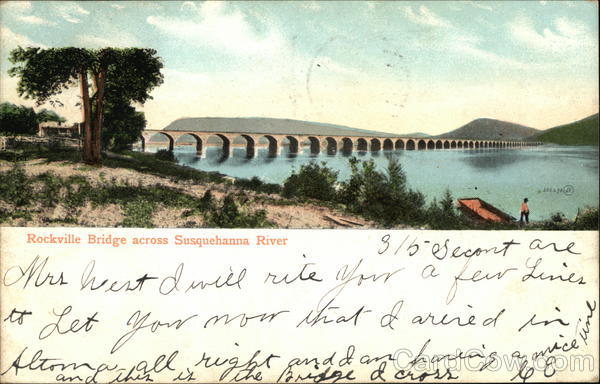 Rockville Bridge across Susquehanna River
315 Secont are
Mrs West I will rite You a few Lines
to Let You now that I arired in
Altoma all right and I am having a nice time
and this is the Bridge I cross
CardCow.com